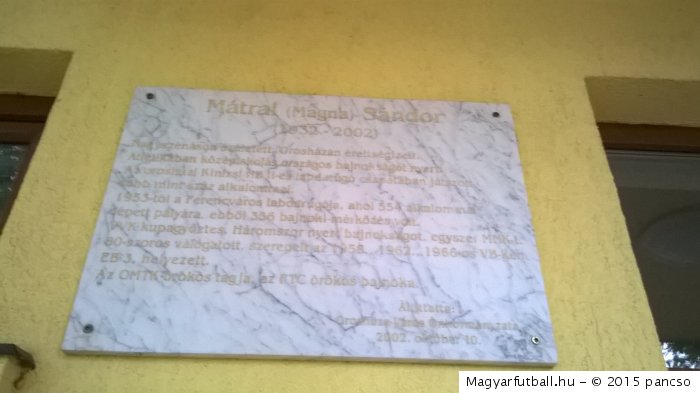 Mátrai (Magna) Sándor
(1932 - 2002)
Nagyszénáson született, Orosházán érettségizett.
Atlétikában középiskolás országos bajnokságot nyert.
Orosházi Kinizsi NB II-es labdarúgó csapatában játszott
több mint száz alkalommal.
1953-tól a Ferencváros labdarúgója, ahol 554 alkalommal
lépett pályára, ebből 356 bajnoki mérkőzés volt.
VVK-kupagyőztes. Háromszor nyert bajnokságot, egyszer MNK-t.
80-szoros válogatott, szerepelt az 1958, 1962, 1966-os VB-ken
EB 3. helyezett.
Az OMTK örökös tagja, az FTC örökös bajnoka.
Állíttatta:
Orosháza Város Önkormányzata
2002. október 10.
Magyarfutball.hu – © 2015 pancso